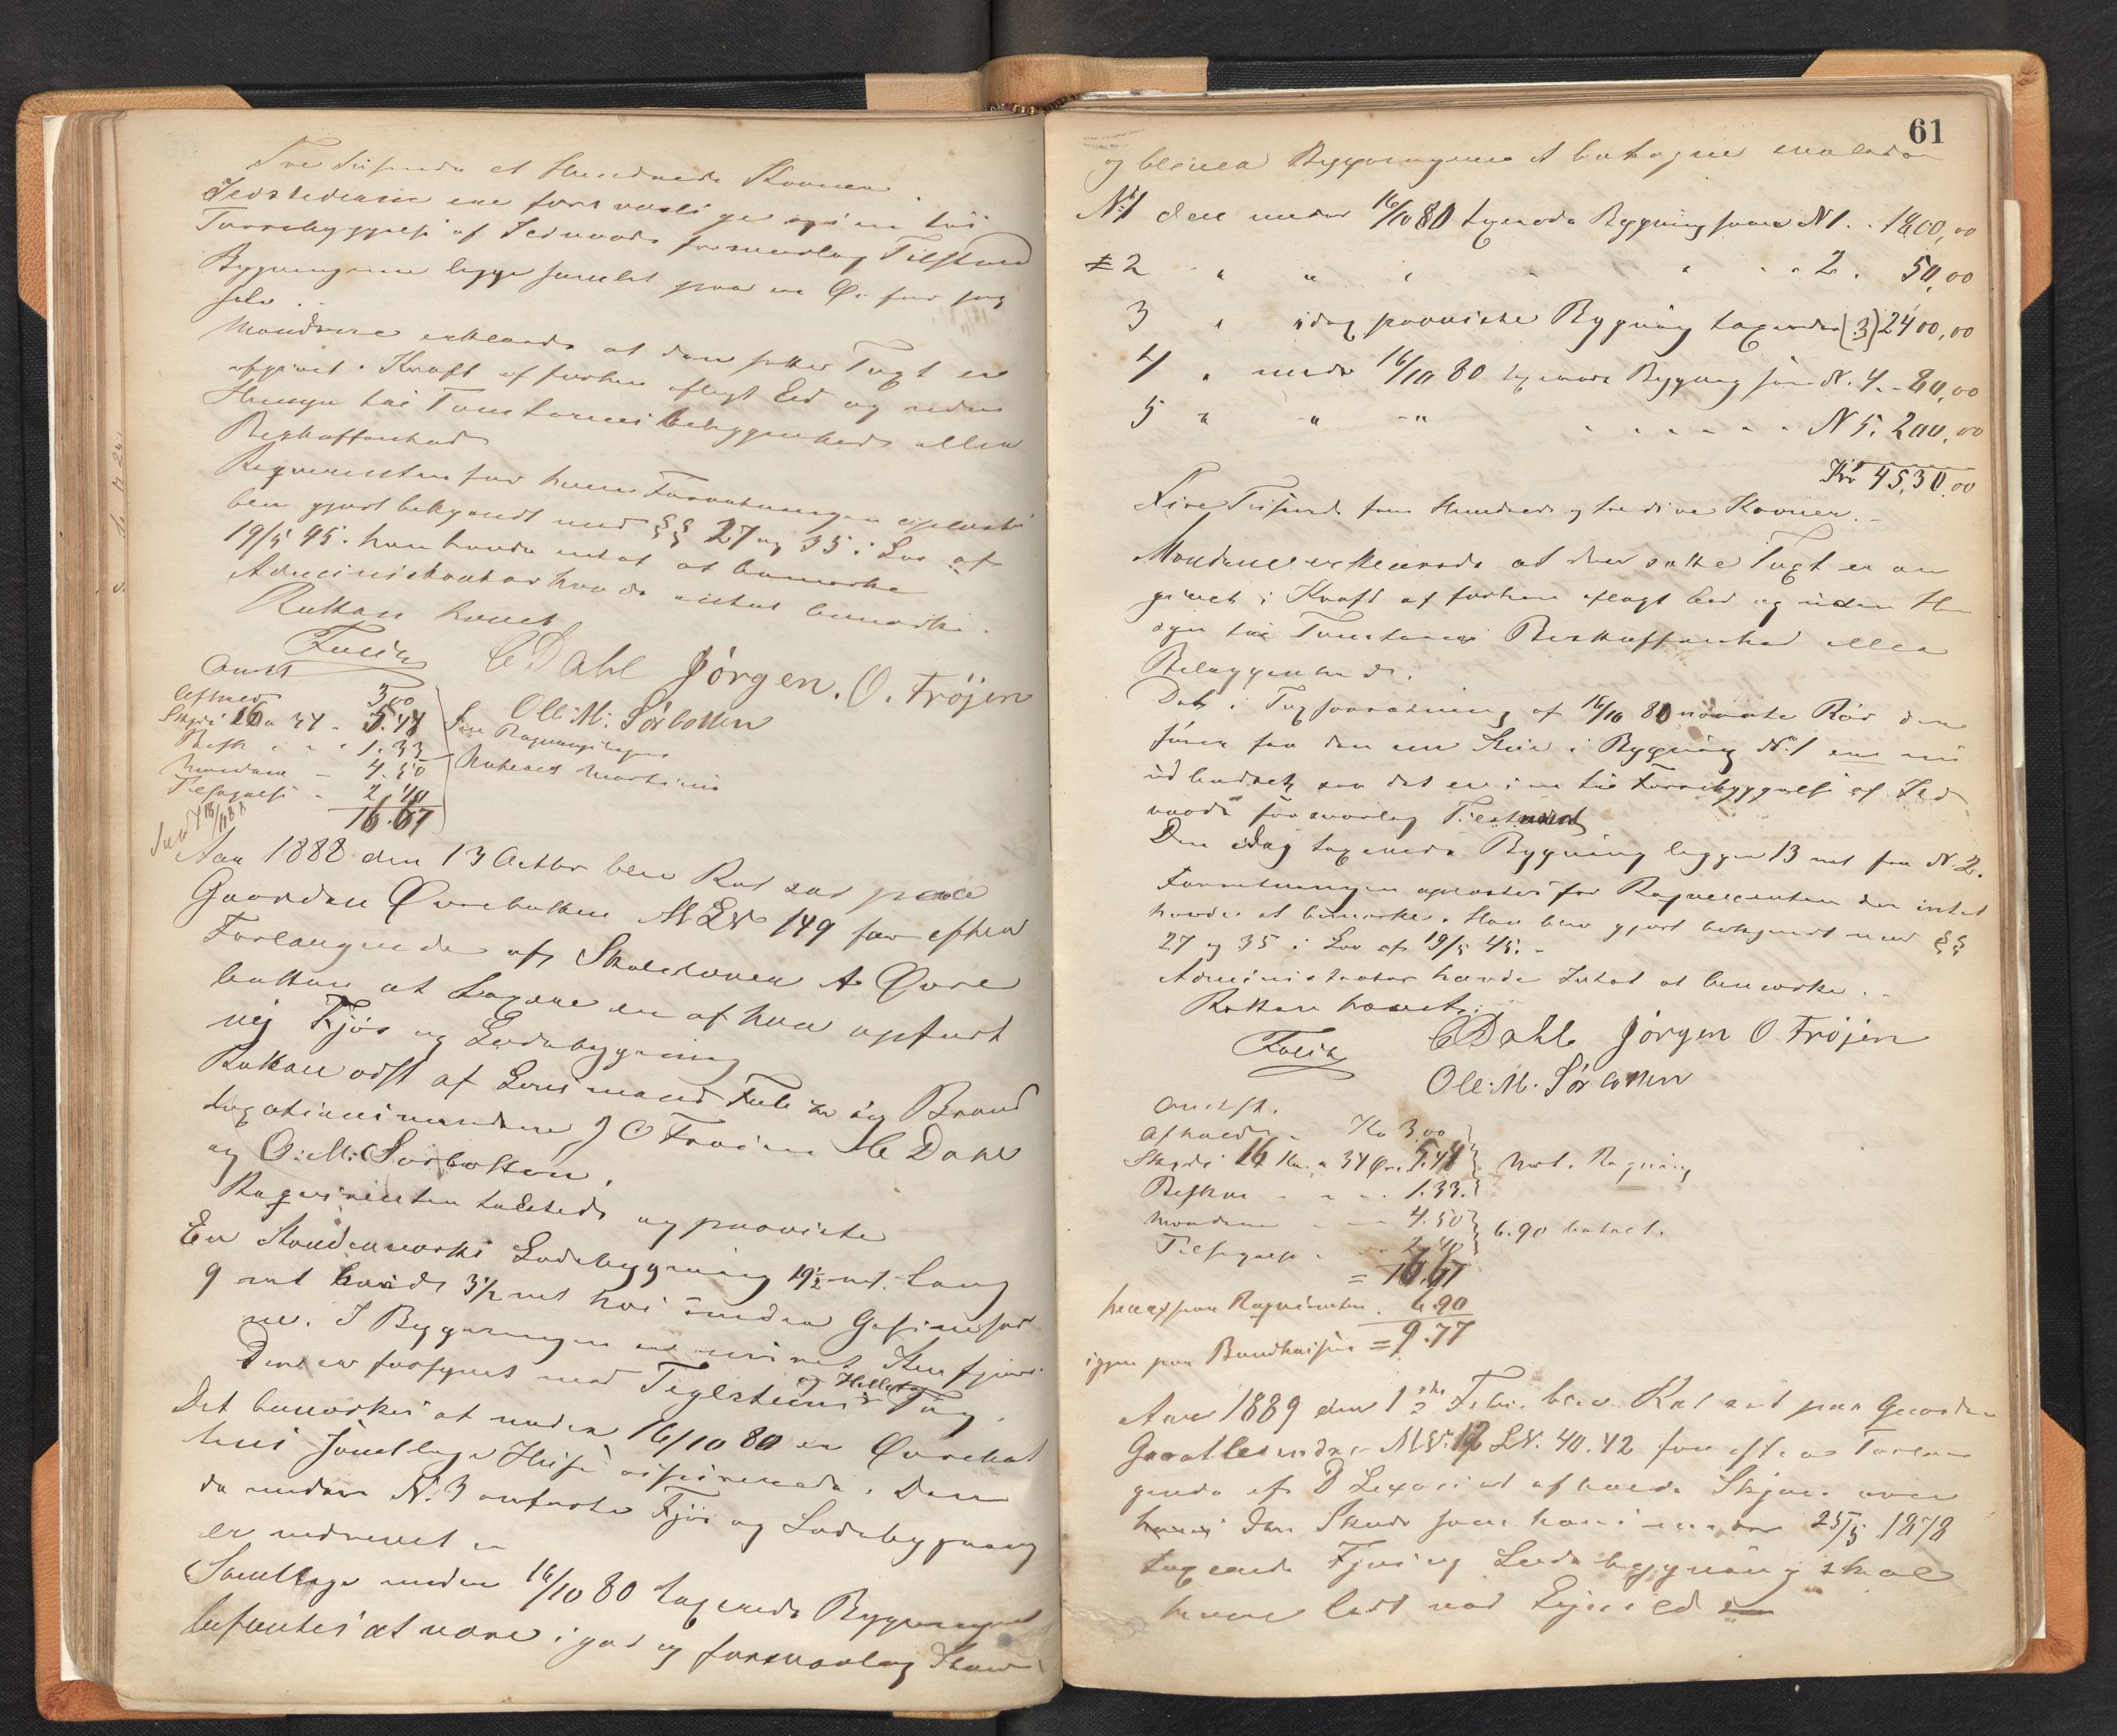 Tre Tusinde et Hundrede Kroner
Ildstederne ere forsvarlige og i en til
Forebyggelse af Ildsvaade forsvarlig Tilstand
Bygningerne ligge samlet paa en Ø for sig
selv.
Mændene erklærede at den satte Taxt er
afgivet i Kraft af forhen aflagt Ed og uden
Hensyn til Tomternes Beliggenhed eller
Beskaffenhed
Reqvirenten for hvem Forretningen oplæstes
blev gjort bekjendt med §§ 27 og 35 i Lov af
19/5 45. han havde intet at bemærke
Administrator havde intet bemærke.
Retten hævet
Falch C Dahl Jørgen. O. Frøjen
Ole: M: Sørbotten
Omk
Afhold 3.00
Skyds 16 Km a 34 - 5.44
Besk " " " 1.33
Mændene - 4.50
Tilsigelse - 2.40
16.67
Aar 1888 den 13 Octbr blev Ret sat paa
Gaarden Øvrebotten M LN 149 for efter
Forlangende af Skolelærer A Øvre
botten at taxere en af ham opført
ny Fjøs og Ladebygning
Retten adst af Lensmand Falch og Brand
taxationsmændene J O Frøien C Dahl
og O: M: Sørbotten.
Reqvirenten tilstede og paaviste
En Stavenverks Ladebygning 19½ mt. lang
9 mt bred 3½ mt høi under Gesimsfod
ne. I Bygningen er muret Stenfjøs.
Den er forsynet med Teglstens og Helle Tag.
Det bemærkes at under 16/10 80 er Øvrebot
tens samtlige Huse assurerede. Den
da under N. 3 anførte Fjøs og Ladebygning
er nedrevet
Samtlige under 16/10 80 taxerede Bygninger
befandtes at være i god og forsvarlig Stand
61
og bleven Bygningerne at betegne saaledes
N: 1 den under 16/10 80 taxerede Bygning som N 1. . 1800,00
2 " " " " . . 2. 50,00
3 " idag paaviste Bygning taxerdes (3) 2400,00
4 " under 16/10 80 taxerede Bygning som N. 4. - 80,00
5 " " " - - - - - - N 5. 200,00
Kr 4530,00
Fire Tusinde fem Hundrede og tredive Kroner.
Mændene erklærede at den satte Taxt er an
givet i Kraft af forhen aflagt Ed og uden Hen
syn til Tomternes Beskaffenhed eller
Beliggenhed.
Det i Taxforretning af 16/10 80 nævnte Rør den
fører fra den ene Stue i Bygning N: 1 ere nu
udbedret saa det er i en til Forebyggelse af Ild
vaade forsvarlig Tilstand
Den idag taxerede Bygning ligger 13 mt fra N. 2.
Forretningen oplæstes for Reqvirenten der intet
havde at bemærke. Han blev gjort bekjendt med §§
27 og 35 i Lov af 19/5 45. -
Administrator havde Intet at bemærke. -
Retten hævet.
Falch C Dahl Jørgen O Frøjen
Ole: M. Sørbotten
Omkost.
Afhold - Kr 3.00
Skyds 16 Km. a 34 Øre 5.44 Mod. Regning
Besk - - - 1.33.
Mændene - - 4.50 6.90 betalt.
Tilsigelse - - 2.40
= 16.67
heraf paa Reqvirenten . 6.90
igjen paa Bundkassen = 9.77
Aar 1889 den 1ste Febr. blev Ret sat paa Gaarden
M N: 12 LN. 40. 42 for efter Forlan
gende af D at afholde Skjøn over
den Skade som hans under 25/5 1878
taxerede Fjøs og Ladebygning skal
have lidt ved Ildebrand